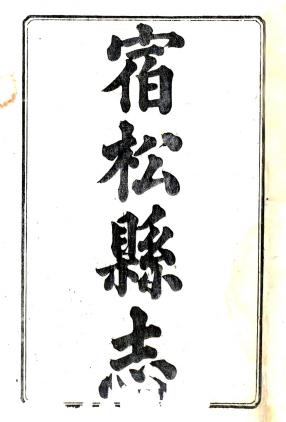 宿松縣志